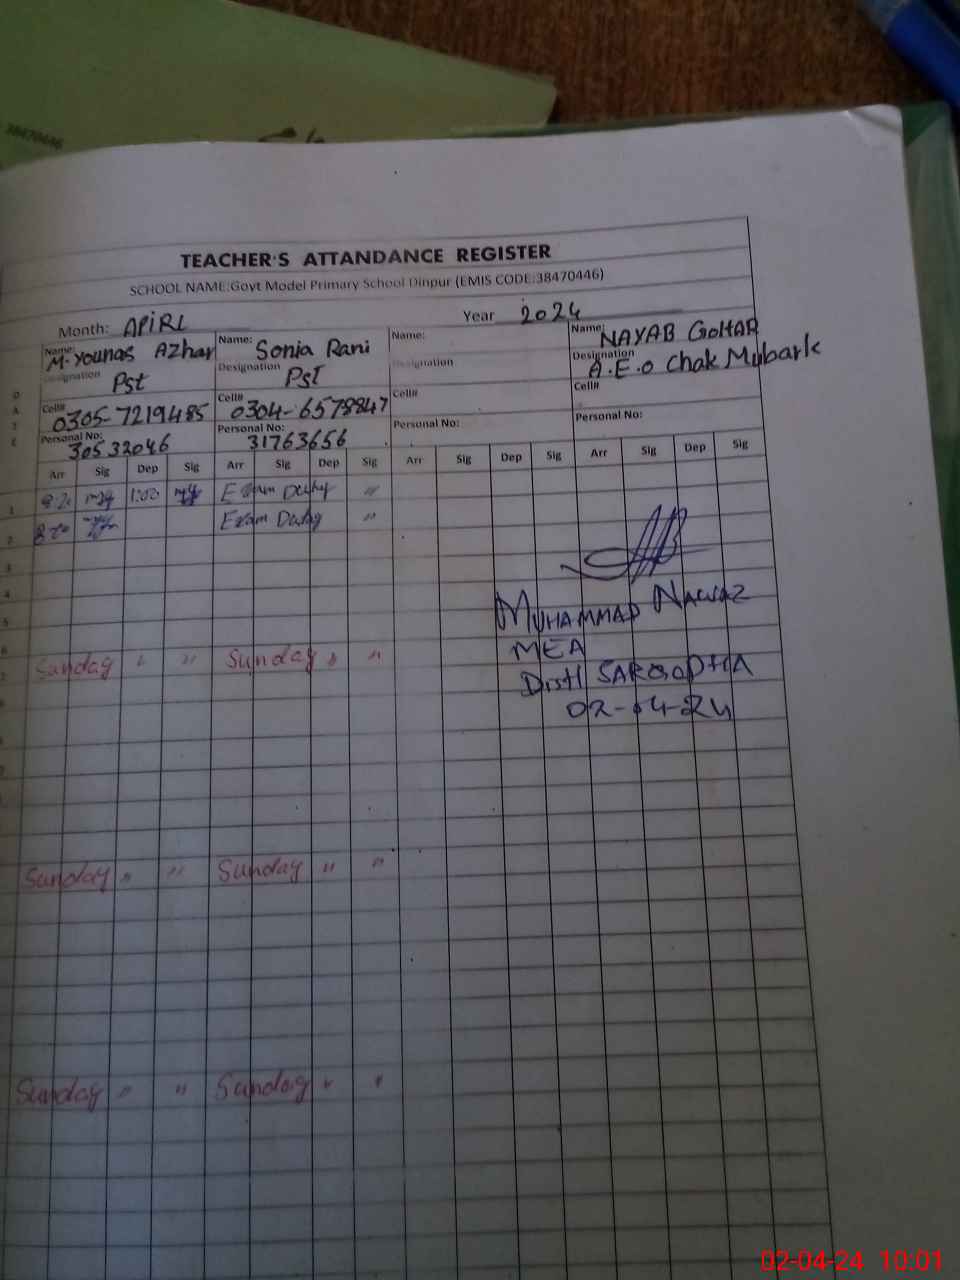 38470446
TEACHER'S ATTANDANCE REGISTER
SCHOOL NAME:Govt Model Primary School Dinpur (EMIS CODE:38470446)
Month: APIRL Year 2024
Name: M. Younas Azhar Name: Sonia Rani Name: Name: NAYAB GOHAR
Designation Pst Designation PST Designation Designation A.E.O Chak Mubark
Cell# 0305-7219485 Cell# 0304-6578847 Cell# Cell#
Personal No: 30532046 Personal No: 31763656 Personal No: Personal No:
DATE
Arr Sig Dep Sig Arr Sig Dep Sig Arr Sig Dep Sig Arr Sig Dep Sig
1 1:00 Exam Duty "
2 Exam Duty "
3
4
5
6
MUHAMMAD NAWAZ
MEA
Distt SARGODHA
02-04-24
7 Sunday " " Sunday " "
Sunday " " Sunday " "
Sunday " " Sunday " "
02-04-24 10:01